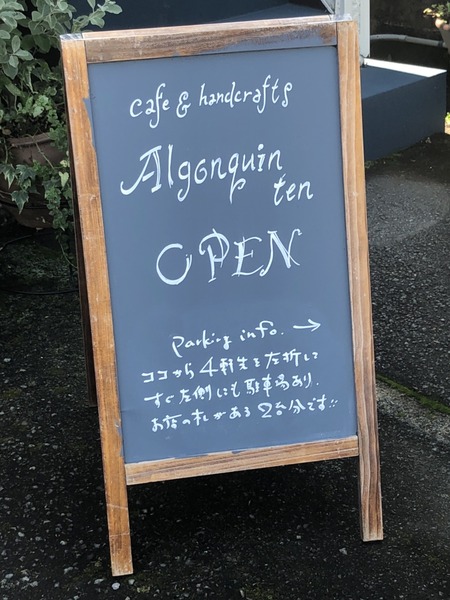 cafe & handcrafts
Algonquin
ten
OPEN
parking info. →
ココから4軒先を左折して
すぐ左側にも駐車場あり.
お店の札がある2台分です!!